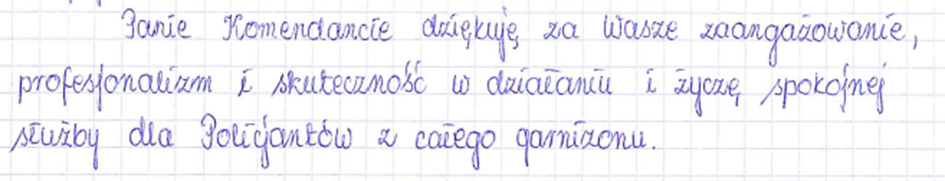 Panie Komendancie dziękuję za Wasze zaangażowanie,
profesjonalizm i skuteczność w działaniu i życzę spokojnej
służby dla Policjantów z całego garnizonu.